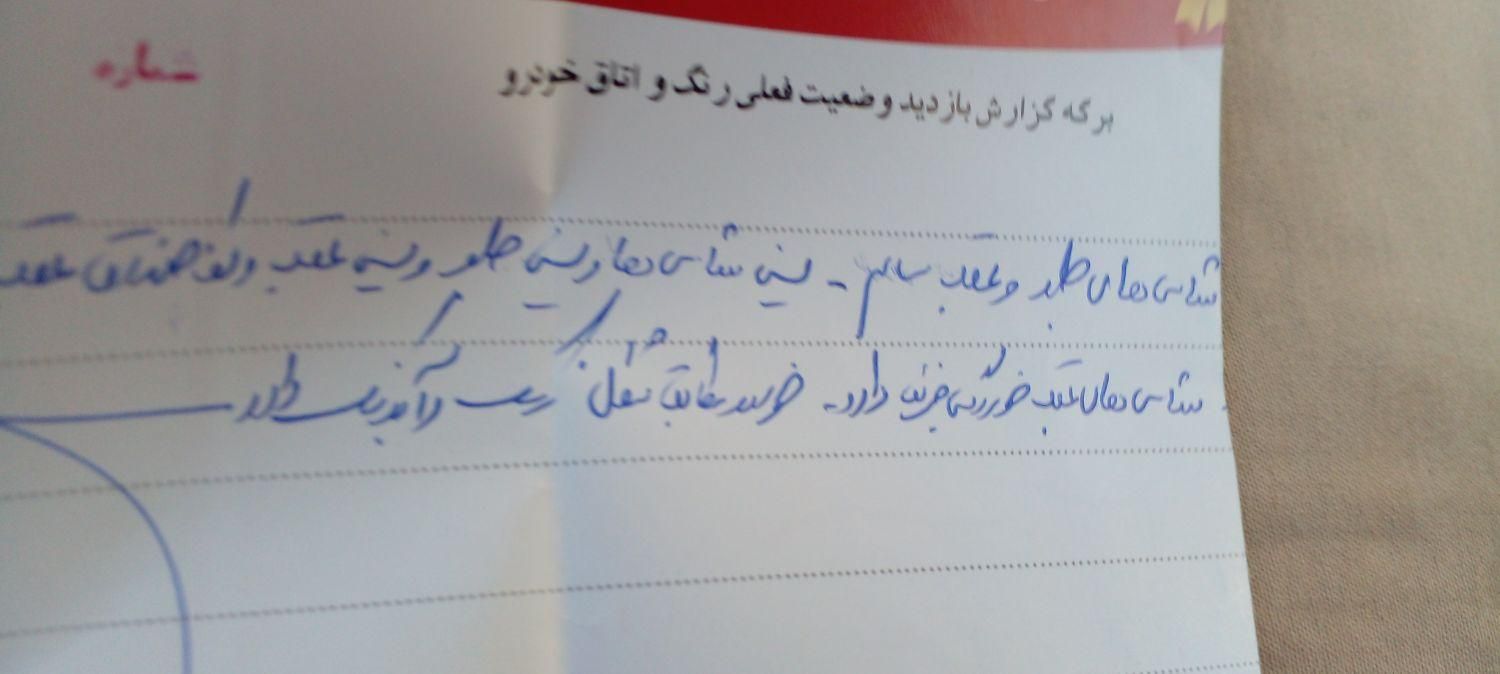 شماره
برگه گزارش بازدید وضعیت فعلی رنگ و اتاق خودرو
شاسی های جلو و عقب سالم - سینی شاسی ها و سینی جلو و سینی عقب و کف صندوق عقب
شاسی های عقب خوردگی جزئی دارد. خودرو مطابق شکل رنگ و آبرنگ دارد